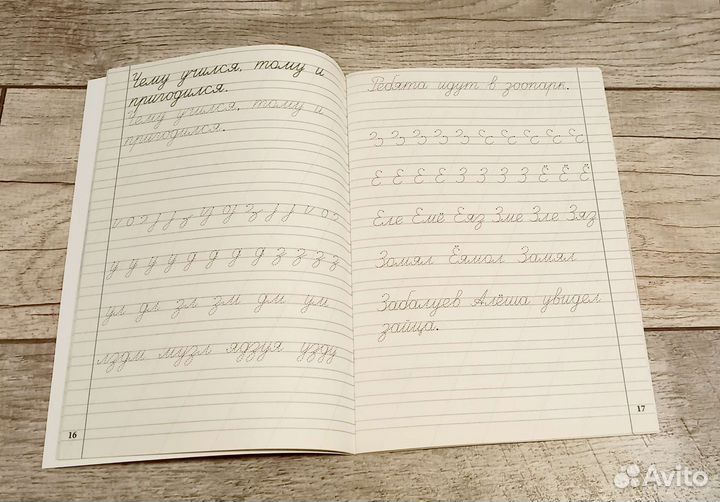 Чему учился, тому и
пригодился.
Чему учился, тому и
пригодился.
у у у у д д д д з з з з
ул дл зл зм дм ум
лздм музл ядзуя узду
16
Ребята идут в зоопарк.
Е Е Е Е З З З З Ё Ё Ё
Еле Емё Еяз Зме Зле Зяз
Зомял Ёямол Замял
Забалуев Алёша увидел
зайца.
17
Avito